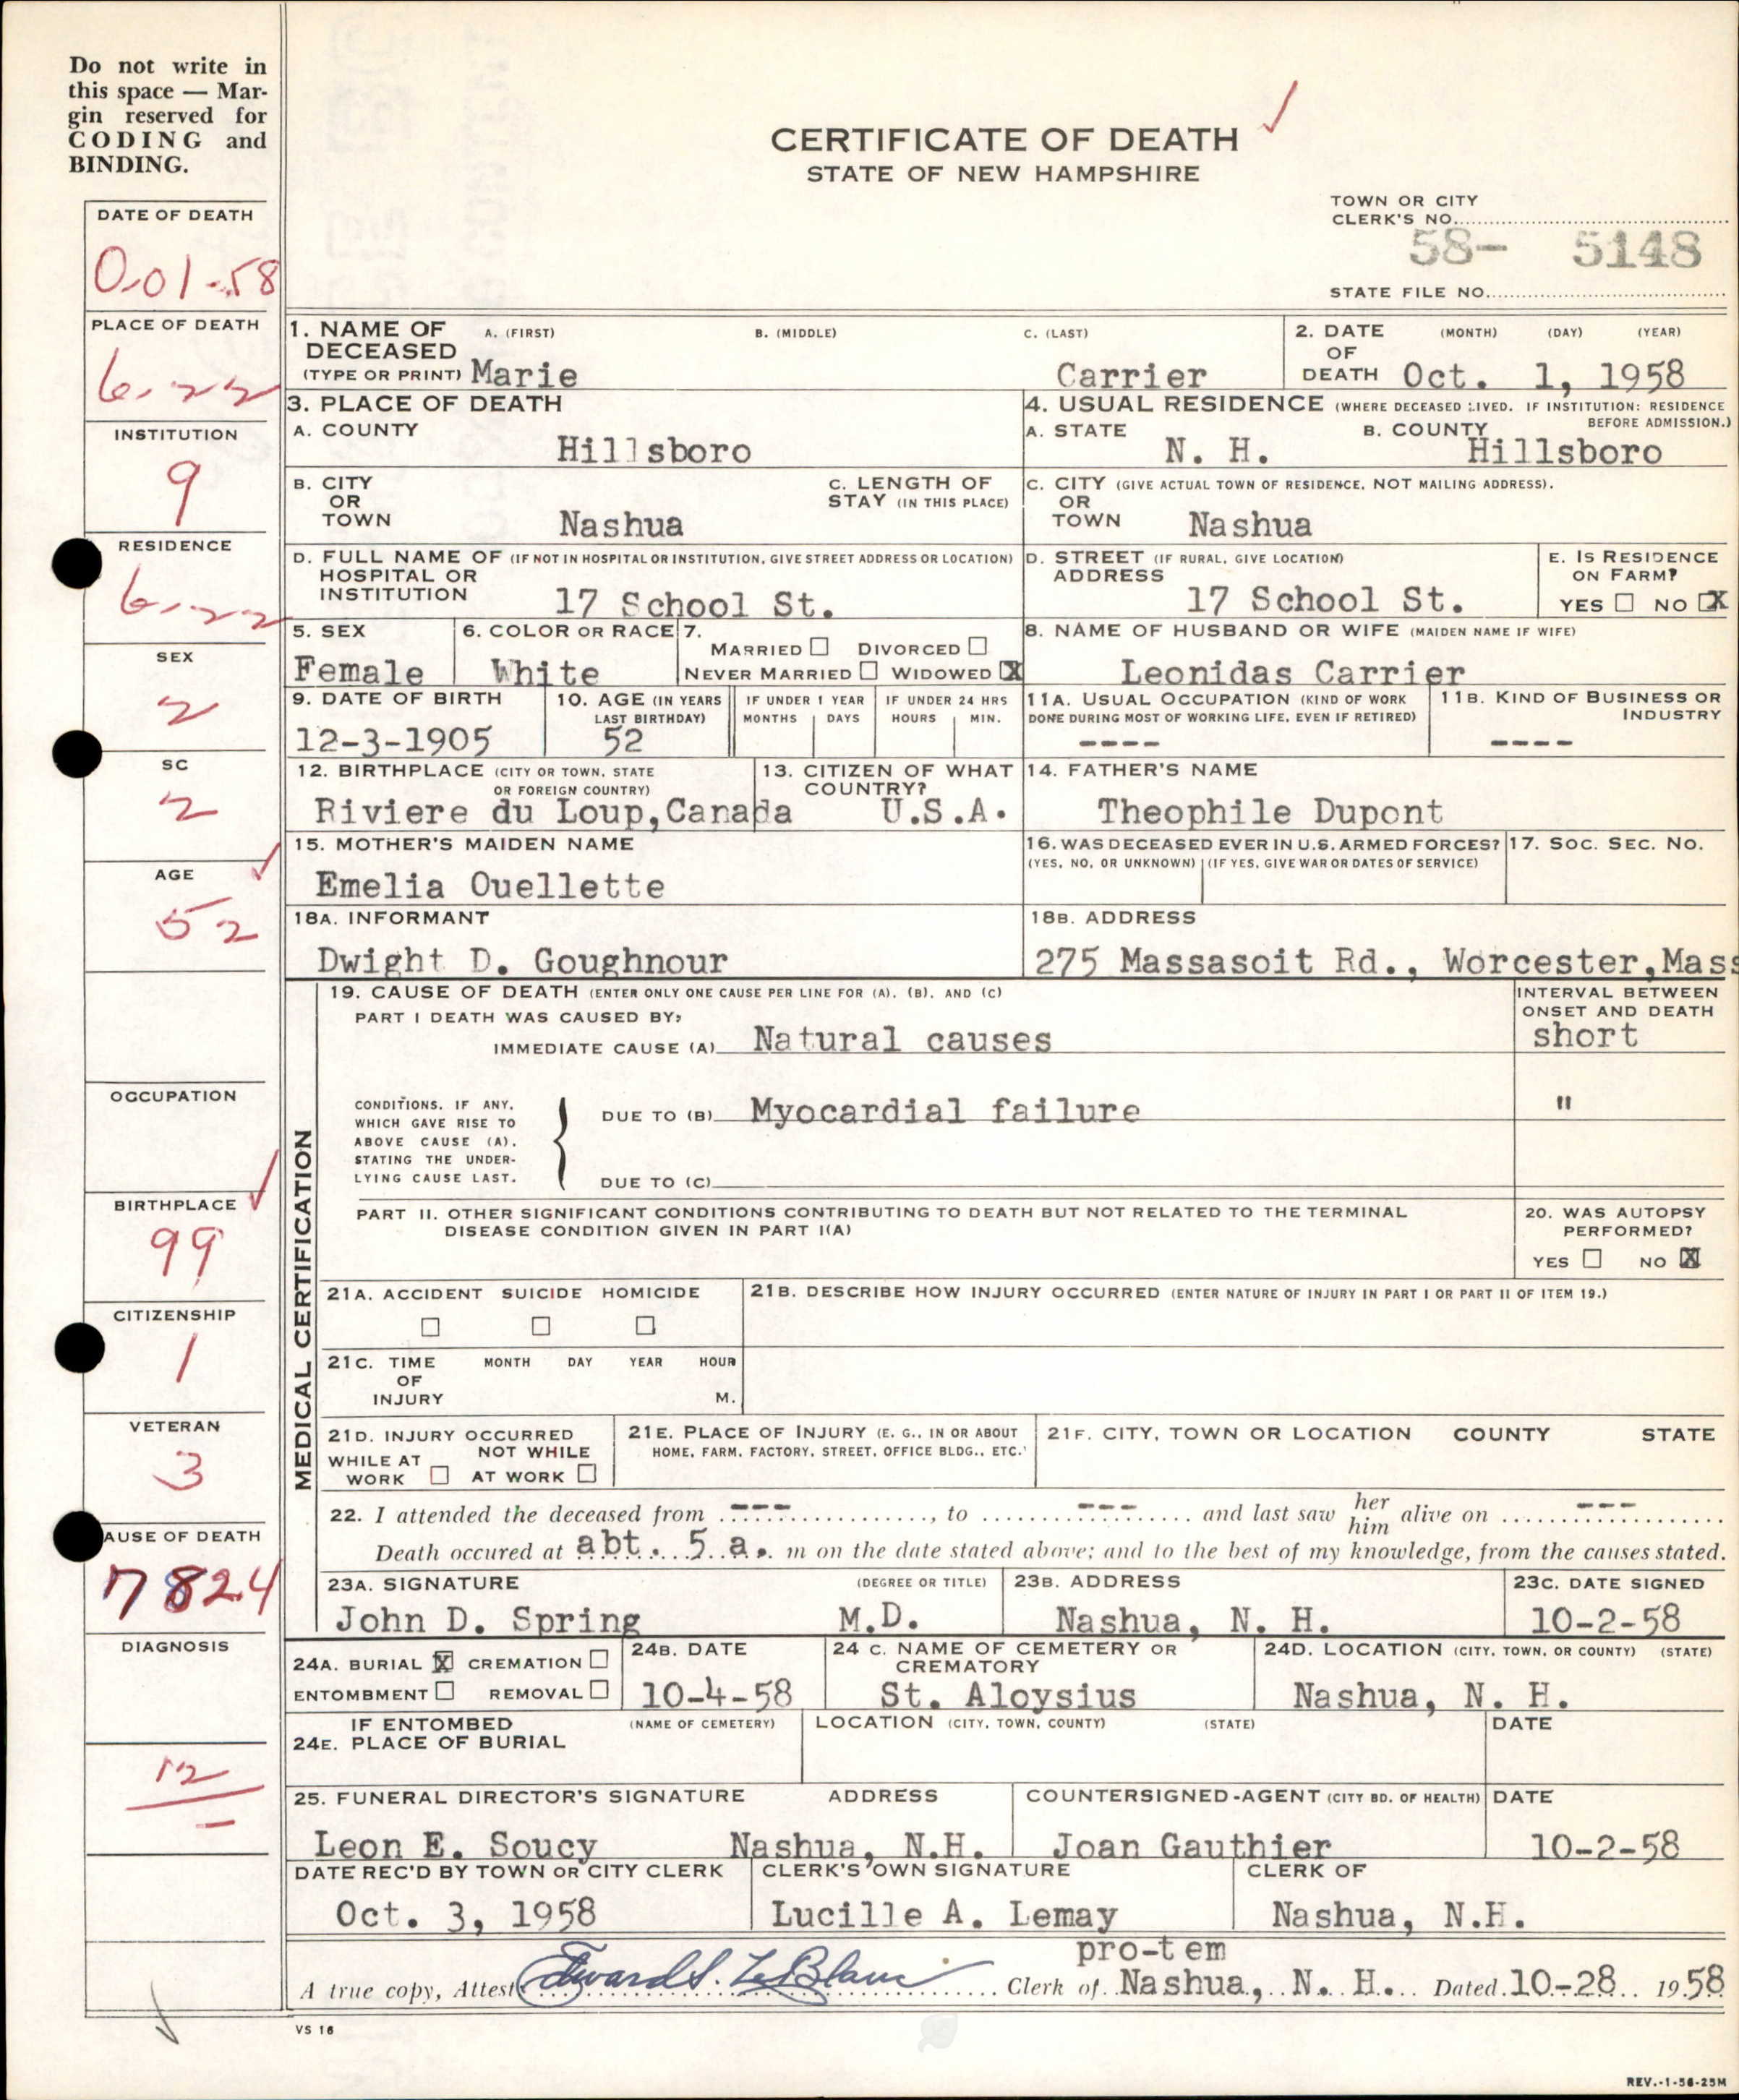 Do not write in
this space — Mar-
gin reserved for
CODING and
BINDING.
CERTIFICATE OF DEATH
STATE OF NEW HAMPSHIRE
TOWN OR CITY
CLERK'S NO.
58- 5148
STATE FILE NO.
DATE OF DEATH
0-01-58
PLACE OF DEATH
6-22
INSTITUTION
9
RESIDENCE
6-22
SEX
2
SC
2
AGE
52
OCCUPATION
BIRTHPLACE
99
CITIZENSHIP
1
VETERAN
3
AUSE OF DEATH
7824
DIAGNOSIS
12
1. NAME OF DECEASED (TYPE OR PRINT) A. (FIRST) B. (MIDDLE) C. (LAST)
Marie Carrier
2. DATE OF DEATH (MONTH) (DAY) (YEAR)
Oct. 1, 1958
3. PLACE OF DEATH
A. COUNTY
Hillsboro
4. USUAL RESIDENCE (WHERE DECEASED LIVED. IF INSTITUTION: RESIDENCE BEFORE ADMISSION.)
A. STATE B. COUNTY
N. H. Hillsboro
B. CITY OR TOWN
Nashua
C. LENGTH OF STAY (IN THIS PLACE)
C. CITY (GIVE ACTUAL TOWN OF RESIDENCE, NOT MAILING ADDRESS).
OR TOWN
Nashua
D. FULL NAME OF (IF NOT IN HOSPITAL OR INSTITUTION, GIVE STREET ADDRESS OR LOCATION)
HOSPITAL OR INSTITUTION
17 School St.
D. STREET (IF RURAL, GIVE LOCATION)
ADDRESS
17 School St.
E. IS RESIDENCE ON FARM?
YES NO X
5. SEX
Female
6. COLOR OR RACE
White
7. MARRIED DIVORCED
NEVER MARRIED WIDOWED X
8. NAME OF HUSBAND OR WIFE (MAIDEN NAME IF WIFE)
Leonidas Carrier
9. DATE OF BIRTH
12-3-1905
10. AGE (IN YEARS LAST BIRTHDAY)
52
IF UNDER 1 YEAR
MONTHS DAYS
IF UNDER 24 HRS
HOURS MIN.
11A. USUAL OCCUPATION (KIND OF WORK DONE DURING MOST OF WORKING LIFE, EVEN IF RETIRED)
----
11B. KIND OF BUSINESS OR INDUSTRY
----
12. BIRTHPLACE (CITY OR TOWN, STATE OR FOREIGN COUNTRY)
Riviere du Loup,Canada
13. CITIZEN OF WHAT COUNTRY?
U.S.A.
14. FATHER'S NAME
Theophile Dupont
15. MOTHER'S MAIDEN NAME
Emelia Ouellette
16. WAS DECEASED EVER IN U.S. ARMED FORCES?
(YES, NO, OR UNKNOWN) (IF YES, GIVE WAR OR DATES OF SERVICE)
17. SOC. SEC. NO.
18A. INFORMANT
Dwight D. Goughnour
18B. ADDRESS
275 Massasoit Rd., Worcester,Mass
MEDICAL CERTIFICATION
19. CAUSE OF DEATH (ENTER ONLY ONE CAUSE PER LINE FOR (A), (B), AND (C)
PART I DEATH WAS CAUSED BY:
IMMEDIATE CAUSE (A) Natural causes
INTERVAL BETWEEN
ONSET AND DEATH
short
CONDITIONS, IF ANY,
WHICH GAVE RISE TO
ABOVE CAUSE (A),
STATING THE UNDER-
LYING CAUSE LAST.
DUE TO (B) Myocardial failure "
DUE TO (C)
PART II. OTHER SIGNIFICANT CONDITIONS CONTRIBUTING TO DEATH BUT NOT RELATED TO THE TERMINAL
DISEASE CONDITION GIVEN IN PART I(A)
20. WAS AUTOPSY PERFORMED?
YES NO X
21A. ACCIDENT SUICIDE HOMICIDE
21B. DESCRIBE HOW INJURY OCCURRED (ENTER NATURE OF INJURY IN PART I OR PART II OF ITEM 19.)
21C. TIME OF INJURY MONTH DAY YEAR HOUR
M.
21D. INJURY OCCURRED
WHILE AT WORK NOT WHILE AT WORK
21E. PLACE OF INJURY (E. G., IN OR ABOUT
HOME, FARM, FACTORY, STREET, OFFICE BLDG., ETC.
21F. CITY, TOWN OR LOCATION COUNTY STATE
22. I attended the deceased from ---, to --- and last saw her him alive on ---
Death occured at abt. 5 a. m on the date stated above; and to the best of my knowledge, from the causes stated.
23A. SIGNATURE (DEGREE OR TITLE)
John D. Spring M.D.
23B. ADDRESS
Nashua, N. H.
23C. DATE SIGNED
10-2-58
24A. BURIAL X CREMATION
ENTOMBMENT REMOVAL
24B. DATE
10-4-58
24 C. NAME OF CEMETERY OR CREMATORY
St. Aloysius
24D. LOCATION (CITY, TOWN, OR COUNTY) (STATE)
Nashua, N. H.
IF ENTOMBED
24E. PLACE OF BURIAL
(NAME OF CEMETERY) LOCATION (CITY, TOWN, COUNTY) (STATE) DATE
25. FUNERAL DIRECTOR'S SIGNATURE ADDRESS
Leon E. Soucy Nashua, N.H.
COUNTERSIGNED-AGENT (CITY BD. OF HEALTH) DATE
Joan Gauthier 10-2-58
DATE REC'D BY TOWN OR CITY CLERK
Oct. 3, 1958
CLERK'S OWN SIGNATURE
Lucille A. Lemay
CLERK OF
Nashua, N.H.
pro-tem
A true copy, Attest Edward S. LeBlanc Clerk of Nashua, N. H. Dated 10-28 1958
VS 16
REV.-1-56-25M